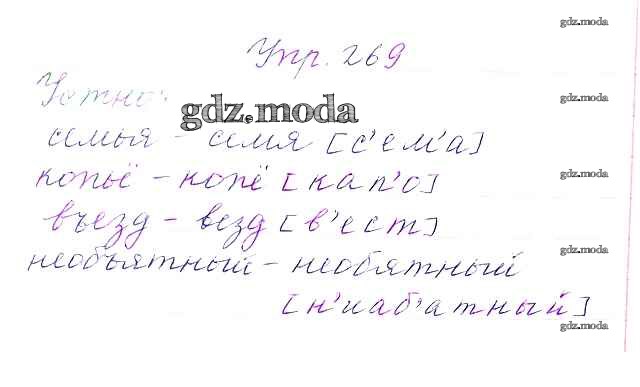 gdz.moda
Упр. 269
Устно:
gdz.moda
gdz.moda
семья - семя [с'ем'а]
копьё - копё [кап'о]
gdz.moda
въезд - везд [в'ест]
необъятный - необятный
gdz.moda
[н'иаб'атный]
gdz.moda